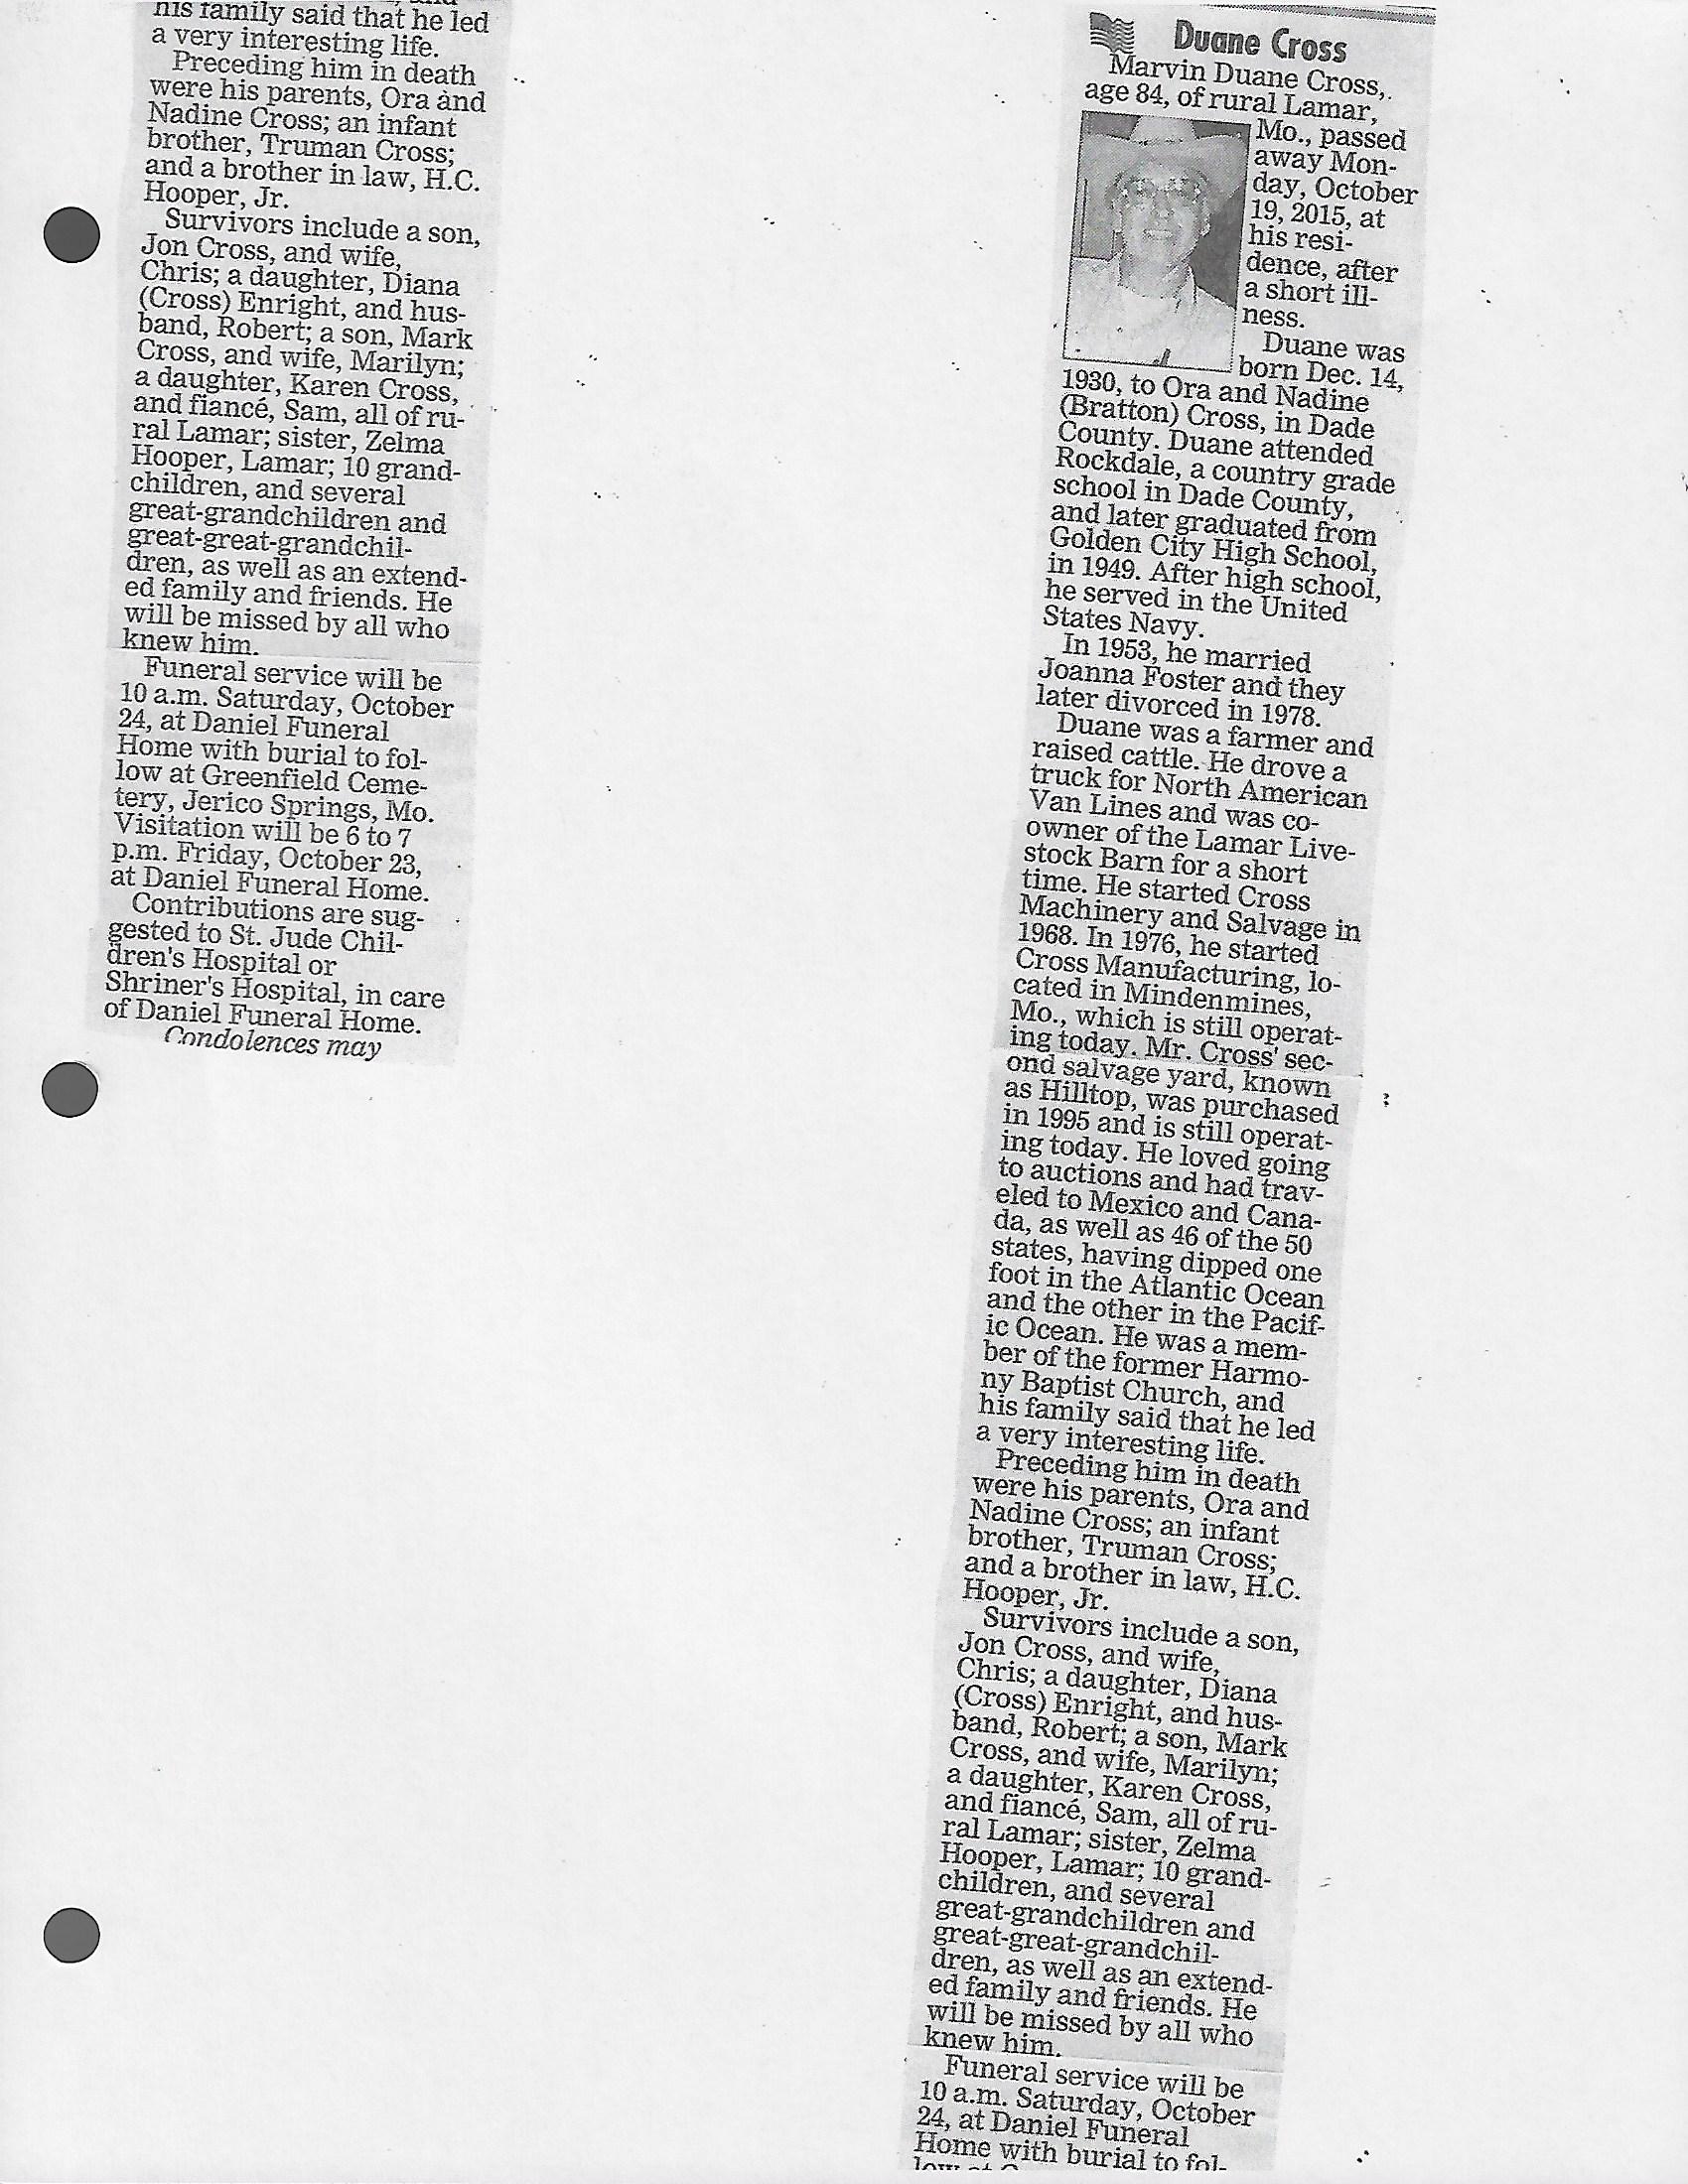 his family said that he led
a very interesting life.
Preceding him in death
were his parents, Ora and
Nadine Cross; an infant
brother, Truman Cross;
and a brother in law, H.C.
Hooper, Jr.
Survivors include a son,
Jon Cross, and wife,
Chris; a daughter, Diana
(Cross) Enright, and hus-
band, Robert; a son, Mark
Cross, and wife, Marilyn;
a daughter, Karen Cross,
and fiancé, Sam, all of ru-
ral Lamar; sister, Zelma
Hooper, Lamar; 10 grand-
children, and several
great-grandchildren and
great-great-grandchil-
dren, as well as an extend-
ed family and friends. He
will be missed by all who
knew him.
Funeral service will be
10 a.m. Saturday, October
24, at Daniel Funeral
Home with burial to fol-
low at Greenfield Ceme-
tery, Jerico Springs, Mo.
Visitation will be 6 to 7
p.m. Friday, October 23,
at Daniel Funeral Home.
Contributions are sug-
gested to St. Jude Chil-
dren's Hospital or
Shriner's Hospital, in care
of Daniel Funeral Home.
Condolences may
Duane Cross
Marvin Duane Cross,
age 84, of rural Lamar,
Mo., passed
away Mon-
day, October
19, 2015, at
his resi-
dence, after
a short ill-
ness.
Duane was
born Dec. 14,
1930, to Ora and Nadine
(Bratton) Cross, in Dade
County. Duane attended
Rockdale, a country grade
school in Dade County,
and later graduated from
Golden City High School,
in 1949. After high school,
he served in the United
States Navy.
In 1953, he married
Joanna Foster and they
later divorced in 1978.
Duane was a farmer and
raised cattle. He drove a
truck for North American
Van Lines and was co-
owner of the Lamar Live-
stock Barn for a short
time. He started Cross
Machinery and Salvage in
1968. In 1976, he started
Cross Manufacturing, lo-
cated in Mindenmines,
Mo., which is still operat-
ing today. Mr. Cross' sec-
ond salvage yard, known
as Hilltop, was purchased
in 1995 and is still operat-
ing today. He loved going
to auctions and had trav-
eled to Mexico and Cana-
da, as well as 46 of the 50
states, having dipped one
foot in the Atlantic Ocean
and the other in the Pacif-
ic Ocean. He was a mem-
ber of the former Harmo-
ny Baptist Church, and
his family said that he led
a very interesting life.
Preceding him in death
were his parents, Ora and
Nadine Cross; an infant
brother, Truman Cross;
and a brother in law, H.C.
Hooper, Jr.
Survivors include a son,
Jon Cross, and wife,
Chris; a daughter, Diana
(Cross) Enright, and hus-
band, Robert; a son, Mark
Cross, and wife, Marilyn;
a daughter, Karen Cross,
and fiancé, Sam, all of ru-
ral Lamar; sister, Zelma
Hooper, Lamar; 10 grand-
children, and several
great-grandchildren and
great-great-grandchil-
dren, as well as an extend-
ed family and friends. He
will be missed by all who
knew him.
Funeral service will be
10 a.m. Saturday, October
24, at Daniel Funeral
Home with burial to fol-